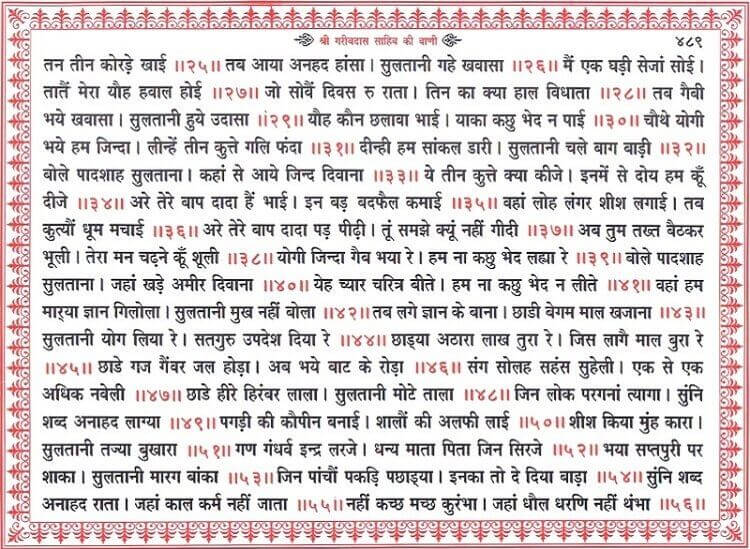 श्री गरीबदास साहिब की वाणी ४८९
तन तीन कोरड़े खाई ॥२५॥ तब आया अनहद हांसा। सुलतानी गहे खवासा ॥२६॥ मैं एक घड़ी सेजां सोई।
तातैं मेरा यौह हवाल होई ॥२७॥ जो सोवैं दिवस रु राता। तिन का क्या हाल विधाता ॥२८॥ तब गैवी
भये खवासा। सुलतानी हुये उदासा ॥२९॥ यौह कौन छलावा भाई। याका कछु भेद न पाई ॥३०॥ चौथे योगी
भये हम जिन्दा। लीन्हें तीन कुत्ते गलि फंदा ॥३१॥ दीन्ही हम सांकल डारी। सुलतानी चले बाग बाड़ी ॥३२॥
बोले पादशाह सुलताना। कहां से आये जिन्द दिवाना ॥३३॥ ये तीन कुत्ते क्या कीजे। इनमें से दोय हम कूँ
दीजे ॥३४॥ अरे तेरे बाप दादा हैं भाई। इन बड़ बदफैल कमाई ॥३५॥ वहां लोह लंगर शीश लगाई। तब
कुत्यौं धूम मचाई ॥३६॥ अरे तेरे बाप दादा पड़ पीढ़ी। तूं समझे क्यूं नहीं गीदी ॥३७॥ अब तुम तख्त बैठकर
भूली। तेरा मन चढ़ने कूँ शूली ॥३८॥ योगी जिन्दा गैब भया रे। हम ना कछु भेद लह्या रे ॥३९॥ बोले पादशाह
सुलताना। जहां खड़े अमीर दिवाना ॥४०॥ येह च्यार चरित्र बीते। हम ना कछु भेद न लीते ॥४१॥ वहां हम
मार्‌या ज्ञान गिलोला। सुलतानी मुख नहीं बोला ॥४२॥ तब लगे ज्ञान के बाना। छाडी बेगम माल खजाना ॥४३॥
सुलतानी योग लिया रे। सतगुरु उपदेश दिया रे ॥४४॥ छाड्या अठारा लाख तुरा रे। जिस लागै माल बुरा रे
॥४५॥ छाडे गज गैंवर जल होड़ा। अब भये बाट के रोड़ा ॥४६॥ संग सोलह सहंस सुहेली। एक से एक
अधिक नवेली ॥४७॥ छाडे हीरे हिरंबर लाला। सुलतानी मोटे ताला ॥४८॥ जिन लोक परगनां त्यागा। सुंनि
शब्द अनाहद लाग्या ॥४९॥ पगड़ी की कौपीन बनाई। शालौं की अलफी लाई ॥५०॥ शीश किया मुंह कारा।
सुलतानी तज्या बुखारा ॥५१॥ गण गंधर्व इन्द्र लरजे। धन्य माता पिता जिन सिरजे ॥५२॥ भया सप्तपुरी पर
शाका। सुलतानी मारग बांका ॥५३॥ जिन पांचौं पकड़ि पछाड्या। इनका तो दे दिया बाड़ा ॥५४॥ सुंनि शब्द
अनाहद राता। जहां काल कर्म नहीं जाता ॥५५॥ नहीं कच्छ मच्छ कुरंभा। जहां धौल धरणि नहीं थंभा ॥५६॥